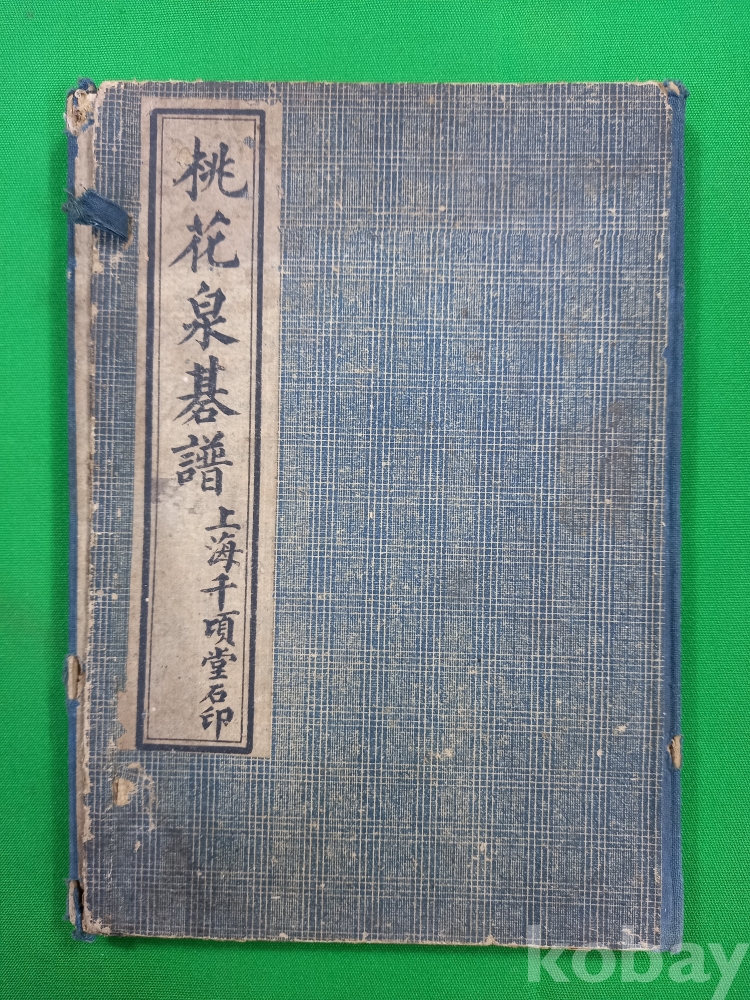 桃花泉碁譜
上海千頃堂石印
kobay